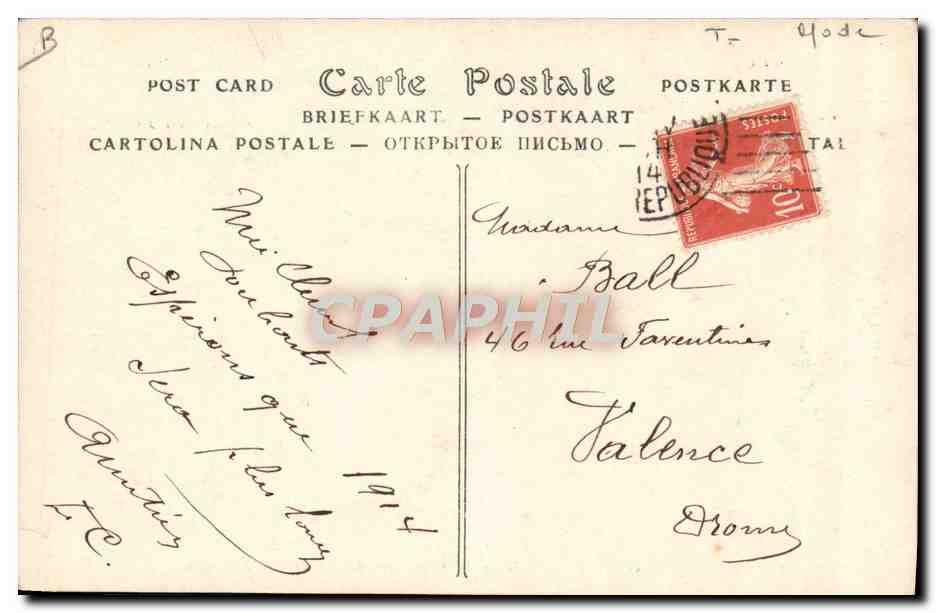 B
T- Mode
POST CARD Carte Postale POSTKARTE
BRIEFKAART — POSTKAART
CARTOLINA POSTALE — ОТКРЫТОЕ ПИСЬМО — TAL
14
REPUBLIQUE
REPUBLIQUE FRANÇAISE
POSTES
10c
souhaits
Espérons que 1914
sera plus
Amitiés
F. C.
Madame
Ball
46 rue Farentines
Valence
Drome
CPAPHIL